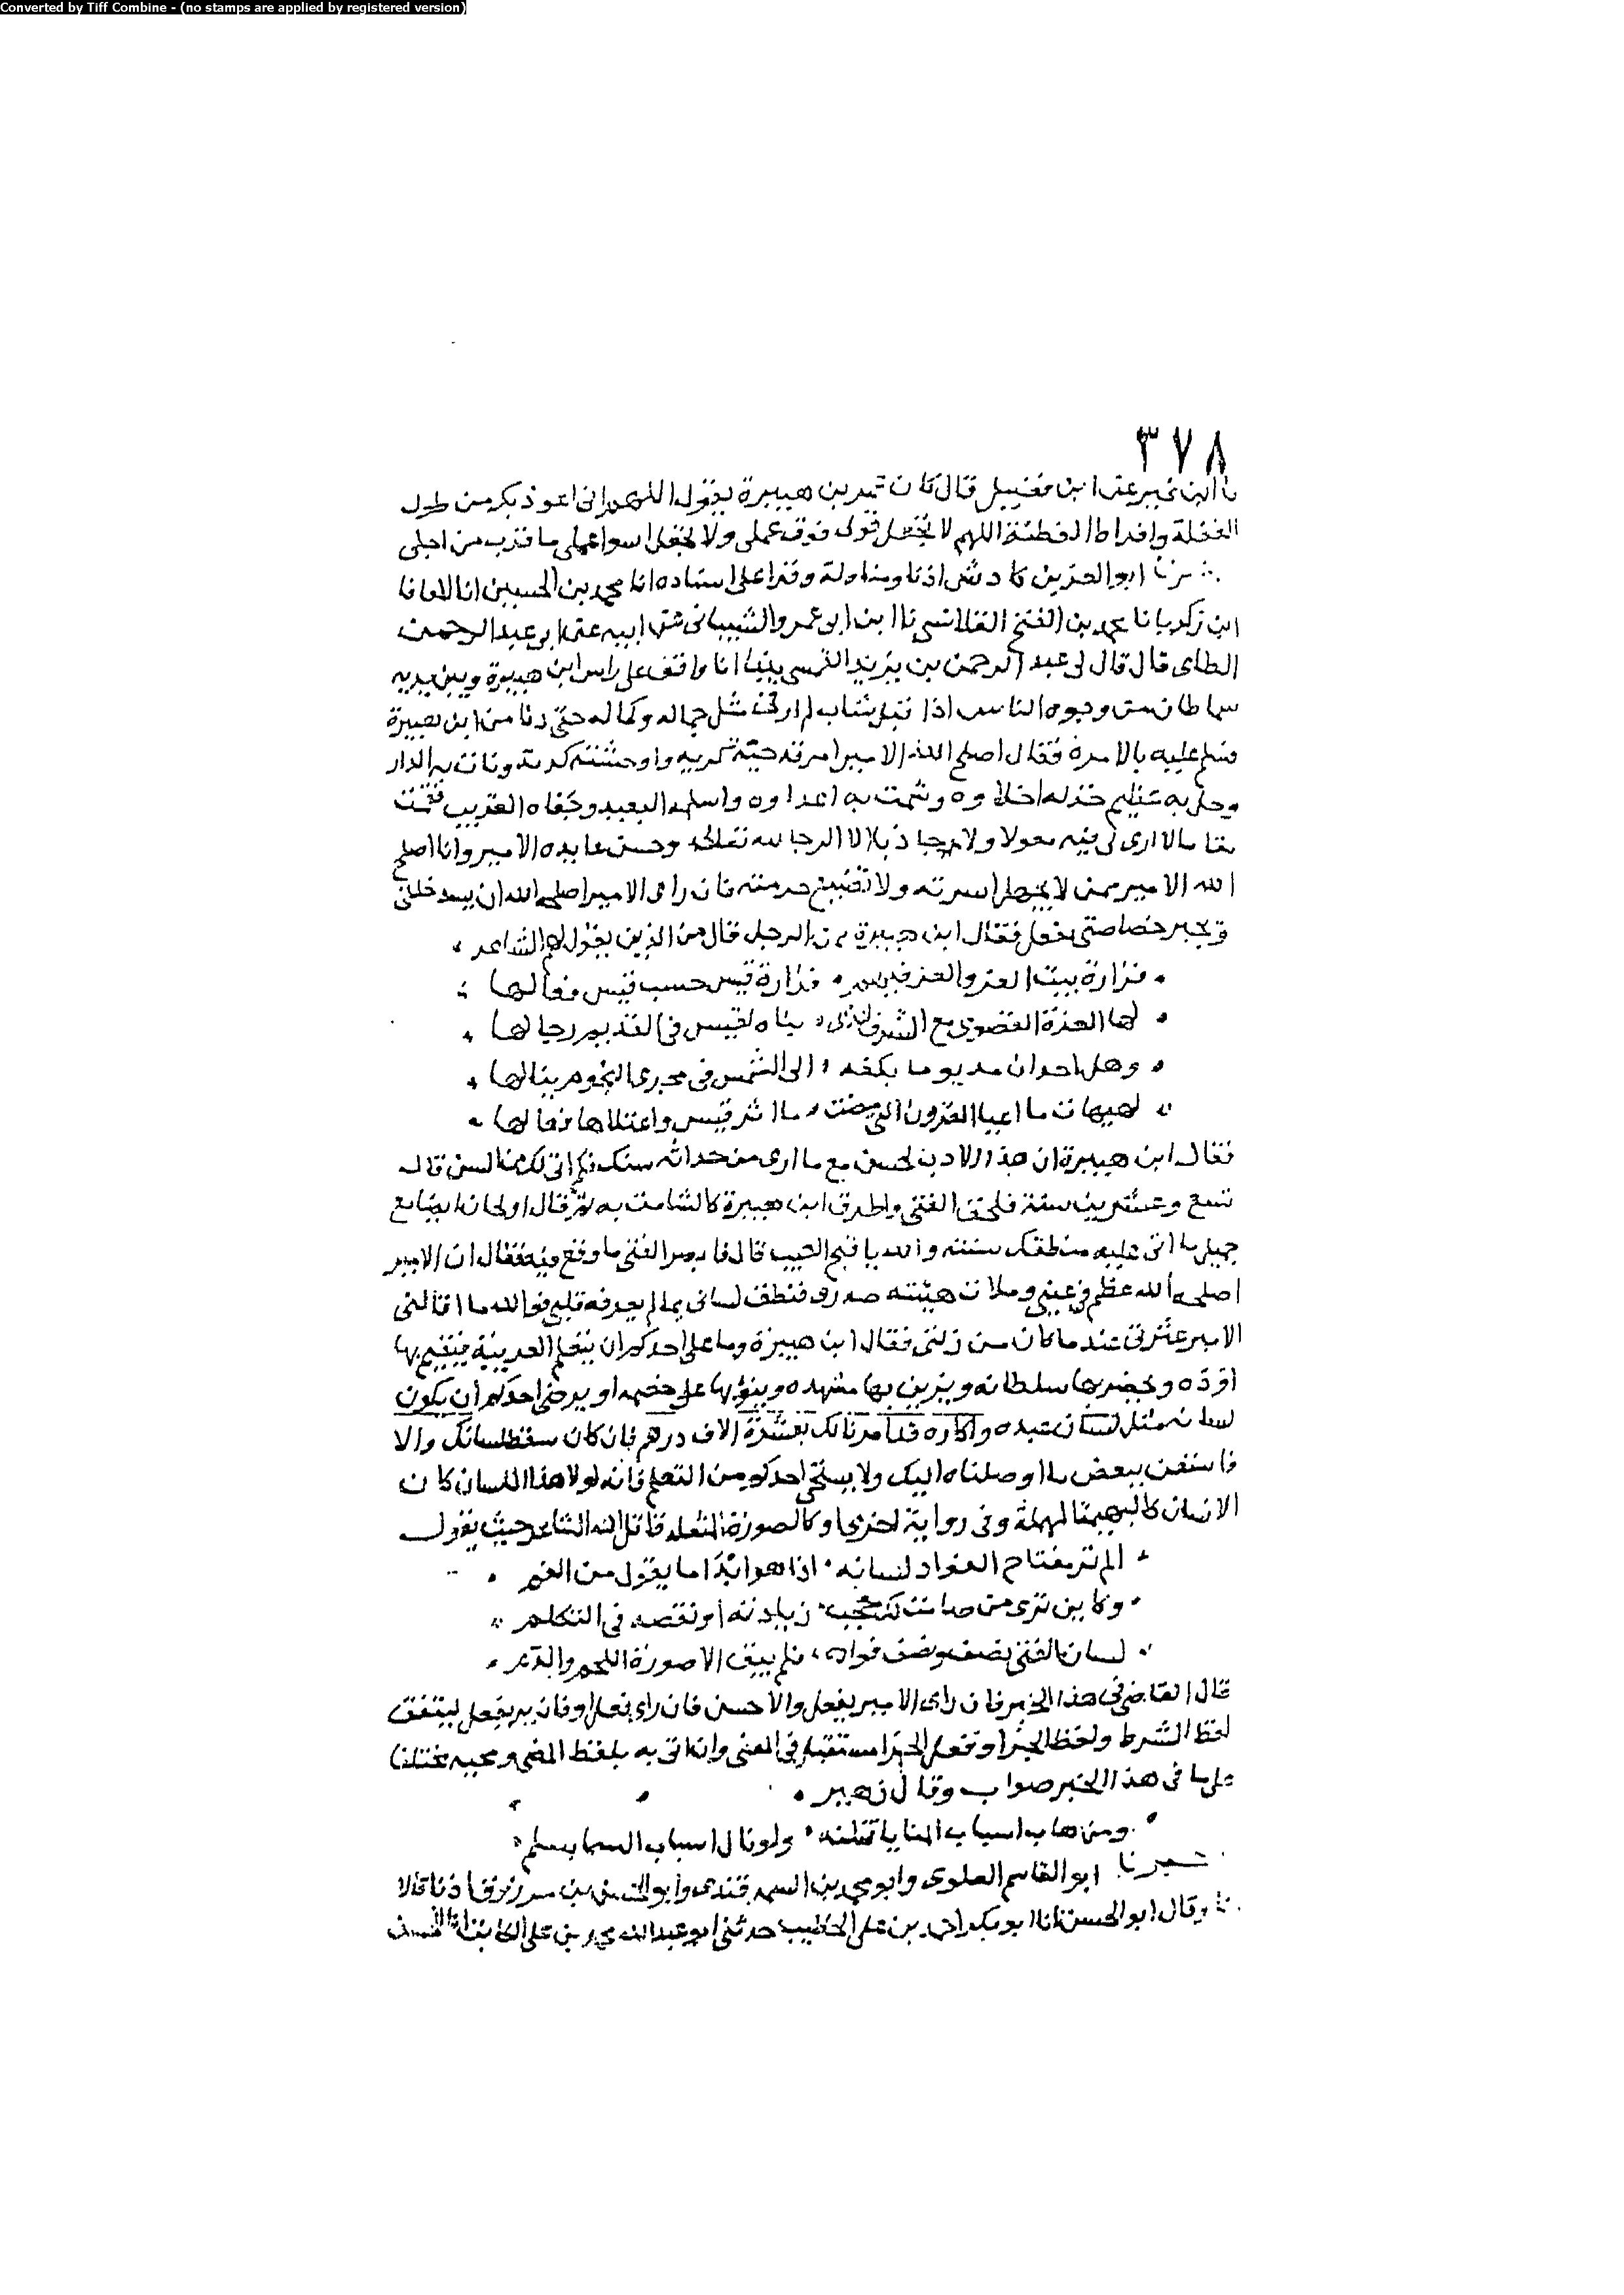 Converted by Tiff Combine - (no stamps are applied by registered version)
٣٧٨
نا ابن نمير عن ابن فضيل قال كان عمر بن هبيرة يقول اللهم انى اعوذ بك من طول
الغفلة وافراط الفطنة اللهم لا تجعل قولى فوق عملى ولا تجعل اسوا عملى ما قرب من اجلى
ابو العز بن كادش اذنا ومناولة وقرا على اسناده انا محمد بن الحسين انا المعافا
ابن زكريا نا محمد بن الفتح القلانسى نا ابن ابو عمرو الشيبانى عن ابيه عن ابو عبد الرحمن
الطاى قال قال لى عبد الرحمن بن يزيد بينا انا واقف على راس ابن هبيرة وبين يديه
سماطان من وجوه الناس اذا قبل شاب لم ار مثل جماله وكماله حتى دنا من ابن هبيرة
فسلم عليه بالامرة فقال اصلح الله الامير امرؤ كربه واوحشته كربته ونات به الدار
وحل به عظيم خذله اخلاوه وشمت به اعداوه واسلمه البعيد وجفاه القريب فقمت
مقاما لا ارى لى فيه معولا ولا الا الرجا لله تعالى وحسن عايده الامير وانا اصلح
الله الامير ممن لا يجهل اسرته ولا تضيع حرمته فان راى الامير اصلحه الله ان يسد خلتى
ويجبر خصاصتى يفعل فقال ابن هبيرة من الرجل قال من الذين يقول لهم الشاعر
فزارة بيت العز والعز فيهم فزارة قيس حسب قيس فعالها
لها العزة القصوى مع الشرف الذى بناه لقيس فى القديم رجالها
وهل احد ان مد يوما بكفه الى الشمس فى مجرى النجوم ينالها
لهيهات ما اعيا القرون التى مضت ماثر قيس واعتلاها فعالها
فقال ابن هبيرة ان هذا الادب لحسن مع ما ارى من حداثه سنك فكم اتى لك من السن قال
تسع وعشرين سنة فلحن الفتى واطرق ابن هبيرة كالشامت به ثم قال اولحان ايضا مع
جميل ما اتى عليه منطقك شنته والله باقبح العيب قال فابصر الفتى ما وقع فيه فقال ان الامير
اصلحه الله عظم فى عينى وملات هيئته صدرى فنطق لسانى بما لم يعرفه قلبى فوالله ما اقالنى
الامير عثرتى عند ما كان من زلتى فقال ابن هبيرة وما على احدكم ان يتعلم العربية فيقيم بها
اوده ويحضر بها سلطانه ويزين بها مشهده وينوء بها على خصمه او يرضى احدكم ان يكون
لسانه مثل لسان عبده واكاره قد امرنا لك بعشرة الاف درهم فان كان سقط لسانك والا
فاستعن ببعض ما اوصلناه اليك ولا يستحى احدكم من التعلم فانه لولا هذا اللسان كان
الانسان كالبهيمة المهملة وفى رواية اخرى او كالصورة الممثله قاتل الله الشاعر حيث يقول
الم تر مفتاح الفواد لسانه اذا هو ابدا ما يقول من الفم
وكاين ترى من صامت لك معجب زيادته او نقصه فى التكلم
لسان الفتى نصف ونصف فواده فلم يبق الا صورة اللحم والدم
قال القاضى فى هذا الخبر فان راى الامير يفعل والاحسن فان راى فعل او فان ير يفعل ليتفق
لفظ الشرط ولفظ الجزا وفعل الجزا مستقبل فى المعنى وان اتى به بلفظ المضى ومجيه مختلفا
على ما فى هذا الخبر صواب وقال زهير
ومن هاب اسباب المنايا تنلنه ولو نال اسباب السما بسلم
ابو القاسم العلوى وابو محمد بن السمرقندى وابو الحسن بن مرزوق اذنا قالا
وقال ابو الحسن انا ابو بكر احمد بن على الخطيب حدثنى ابو عبد الله محمد بن على